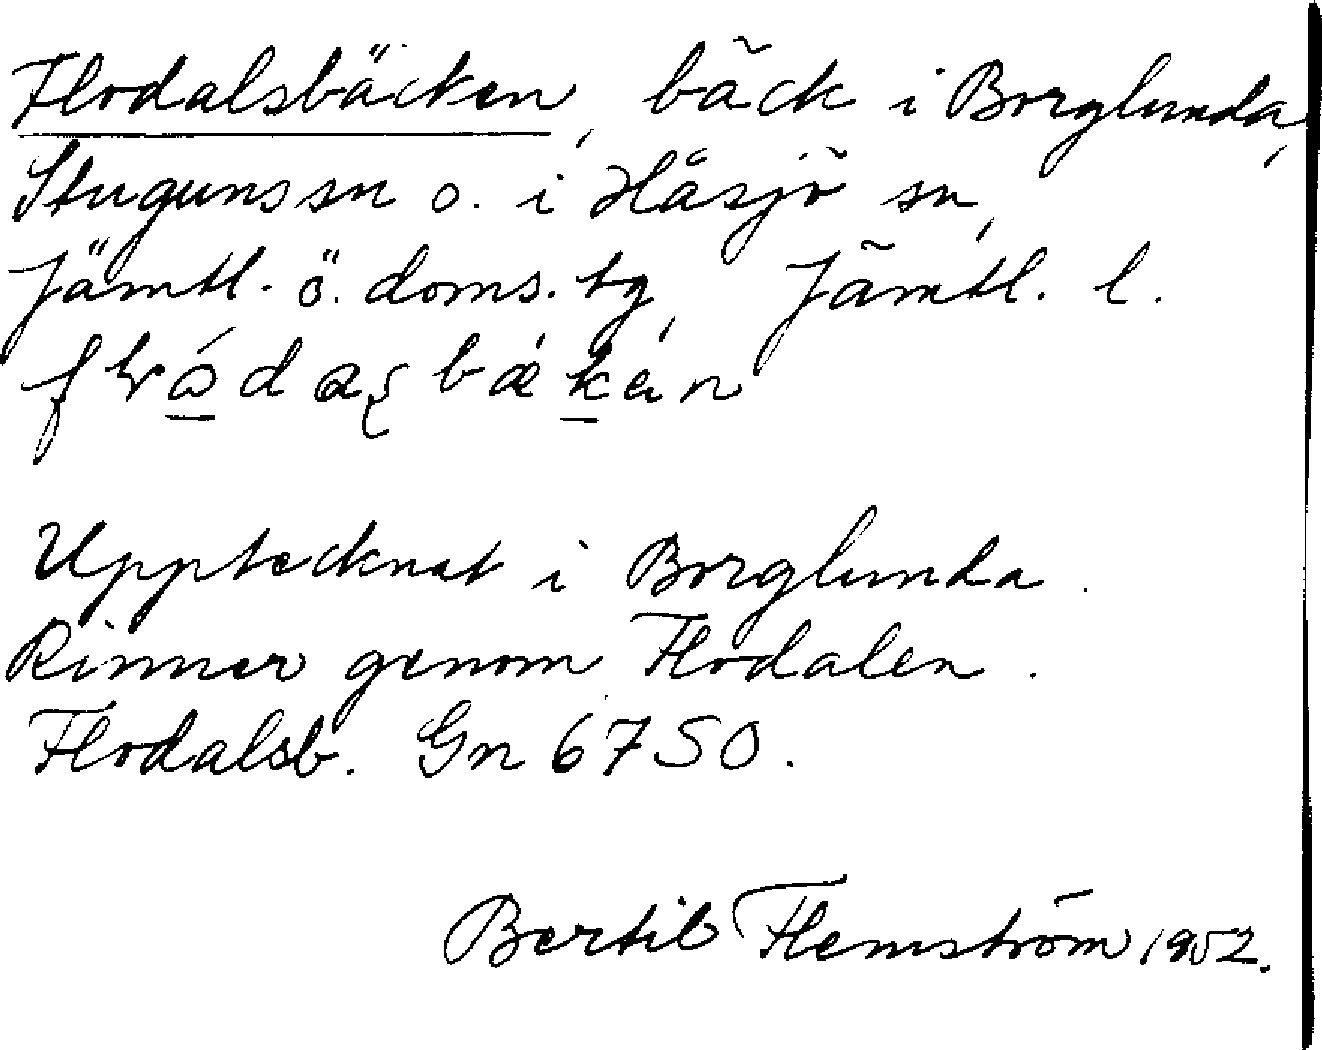 Flodalsbäcken, bäck i Borglunda,
Stuguns sn o. i Håsjö sn,
Jämtl. ö. doms. tg, Jämtl. l.
Upptecknat i Borglunda.
Rinner genom Flodalen.
Flodalsb. Gn 6750.
Bertil Flemström 1952.